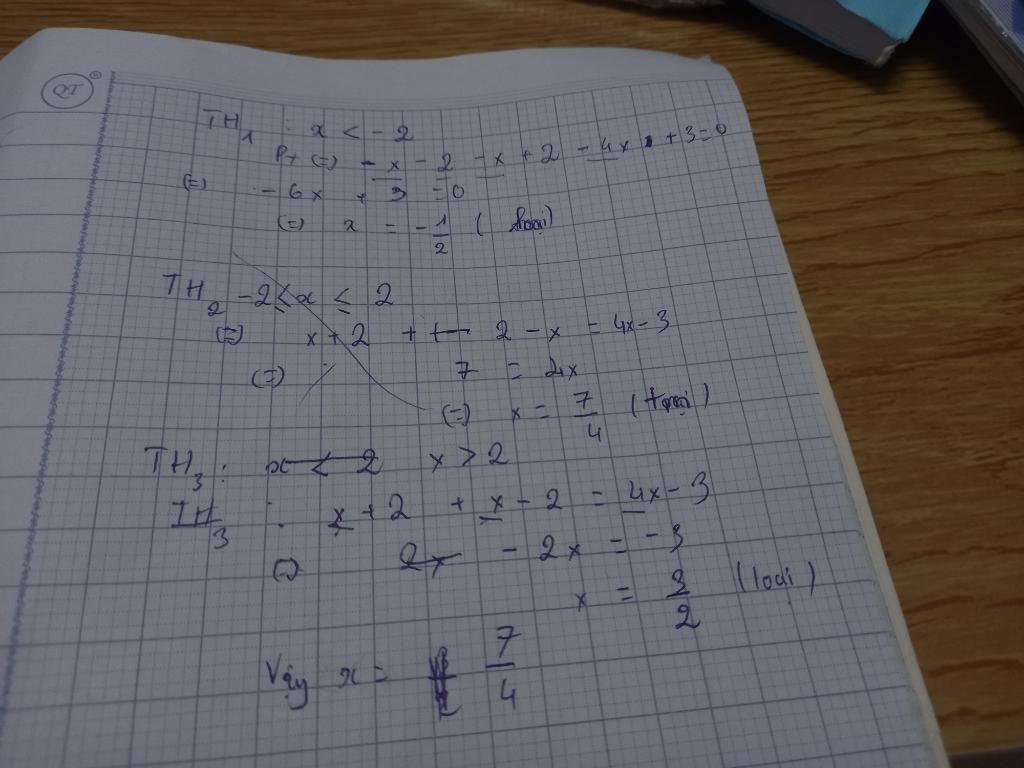 TH1 : x < - 2
Pt (=) - x - 2 - x + 2 - 4x + 3 = 0
(=) - 6x + 3 = 0
(=) x = - 1/2 (
TH2 - 2 ≤ x ≤ 2
(=) x + 2 + 2 - x = 4x - 3
(=) 7 = 4x
(=) x = 7/4 (
TH3 : x < 2 x > 2
TH3 : x + 2 + x - 2 = 4x - 3
(=) 2x - 2x = - 3
x = 3/2 (loại)
Vậy x = 7/4